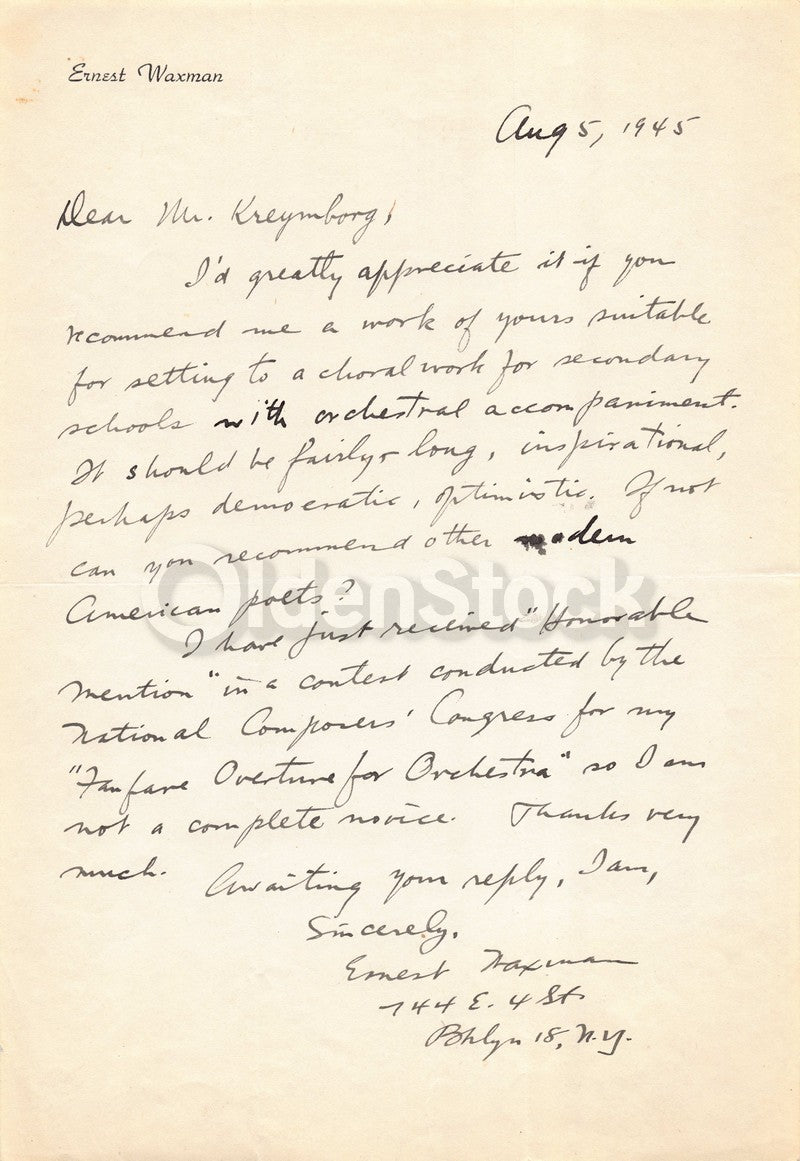 Ernest Waxman
Aug 5, 1945
Dear Mr. Kreymborg,
I'd greatly appreciate it if you
recommend me a work of yours suitable
for setting to a choral work for secondary
schools with orchestral accompaniment.
It should be fairly long, inspirational,
perhaps democratic, optimistic. If not
can you recommend other modern
American poets?
OldenStock
I have just received "Honorable
Mention" in a contest conducted by the
National Composers' Congress for my
"Fanfare Overture for Orchestra" so I am
not a complete novice. Thanks very
much. Awaiting your reply, I am,
Sincerely,
Ernest Waxman
744 E. 4 St.
Bklyn 18, N.Y.